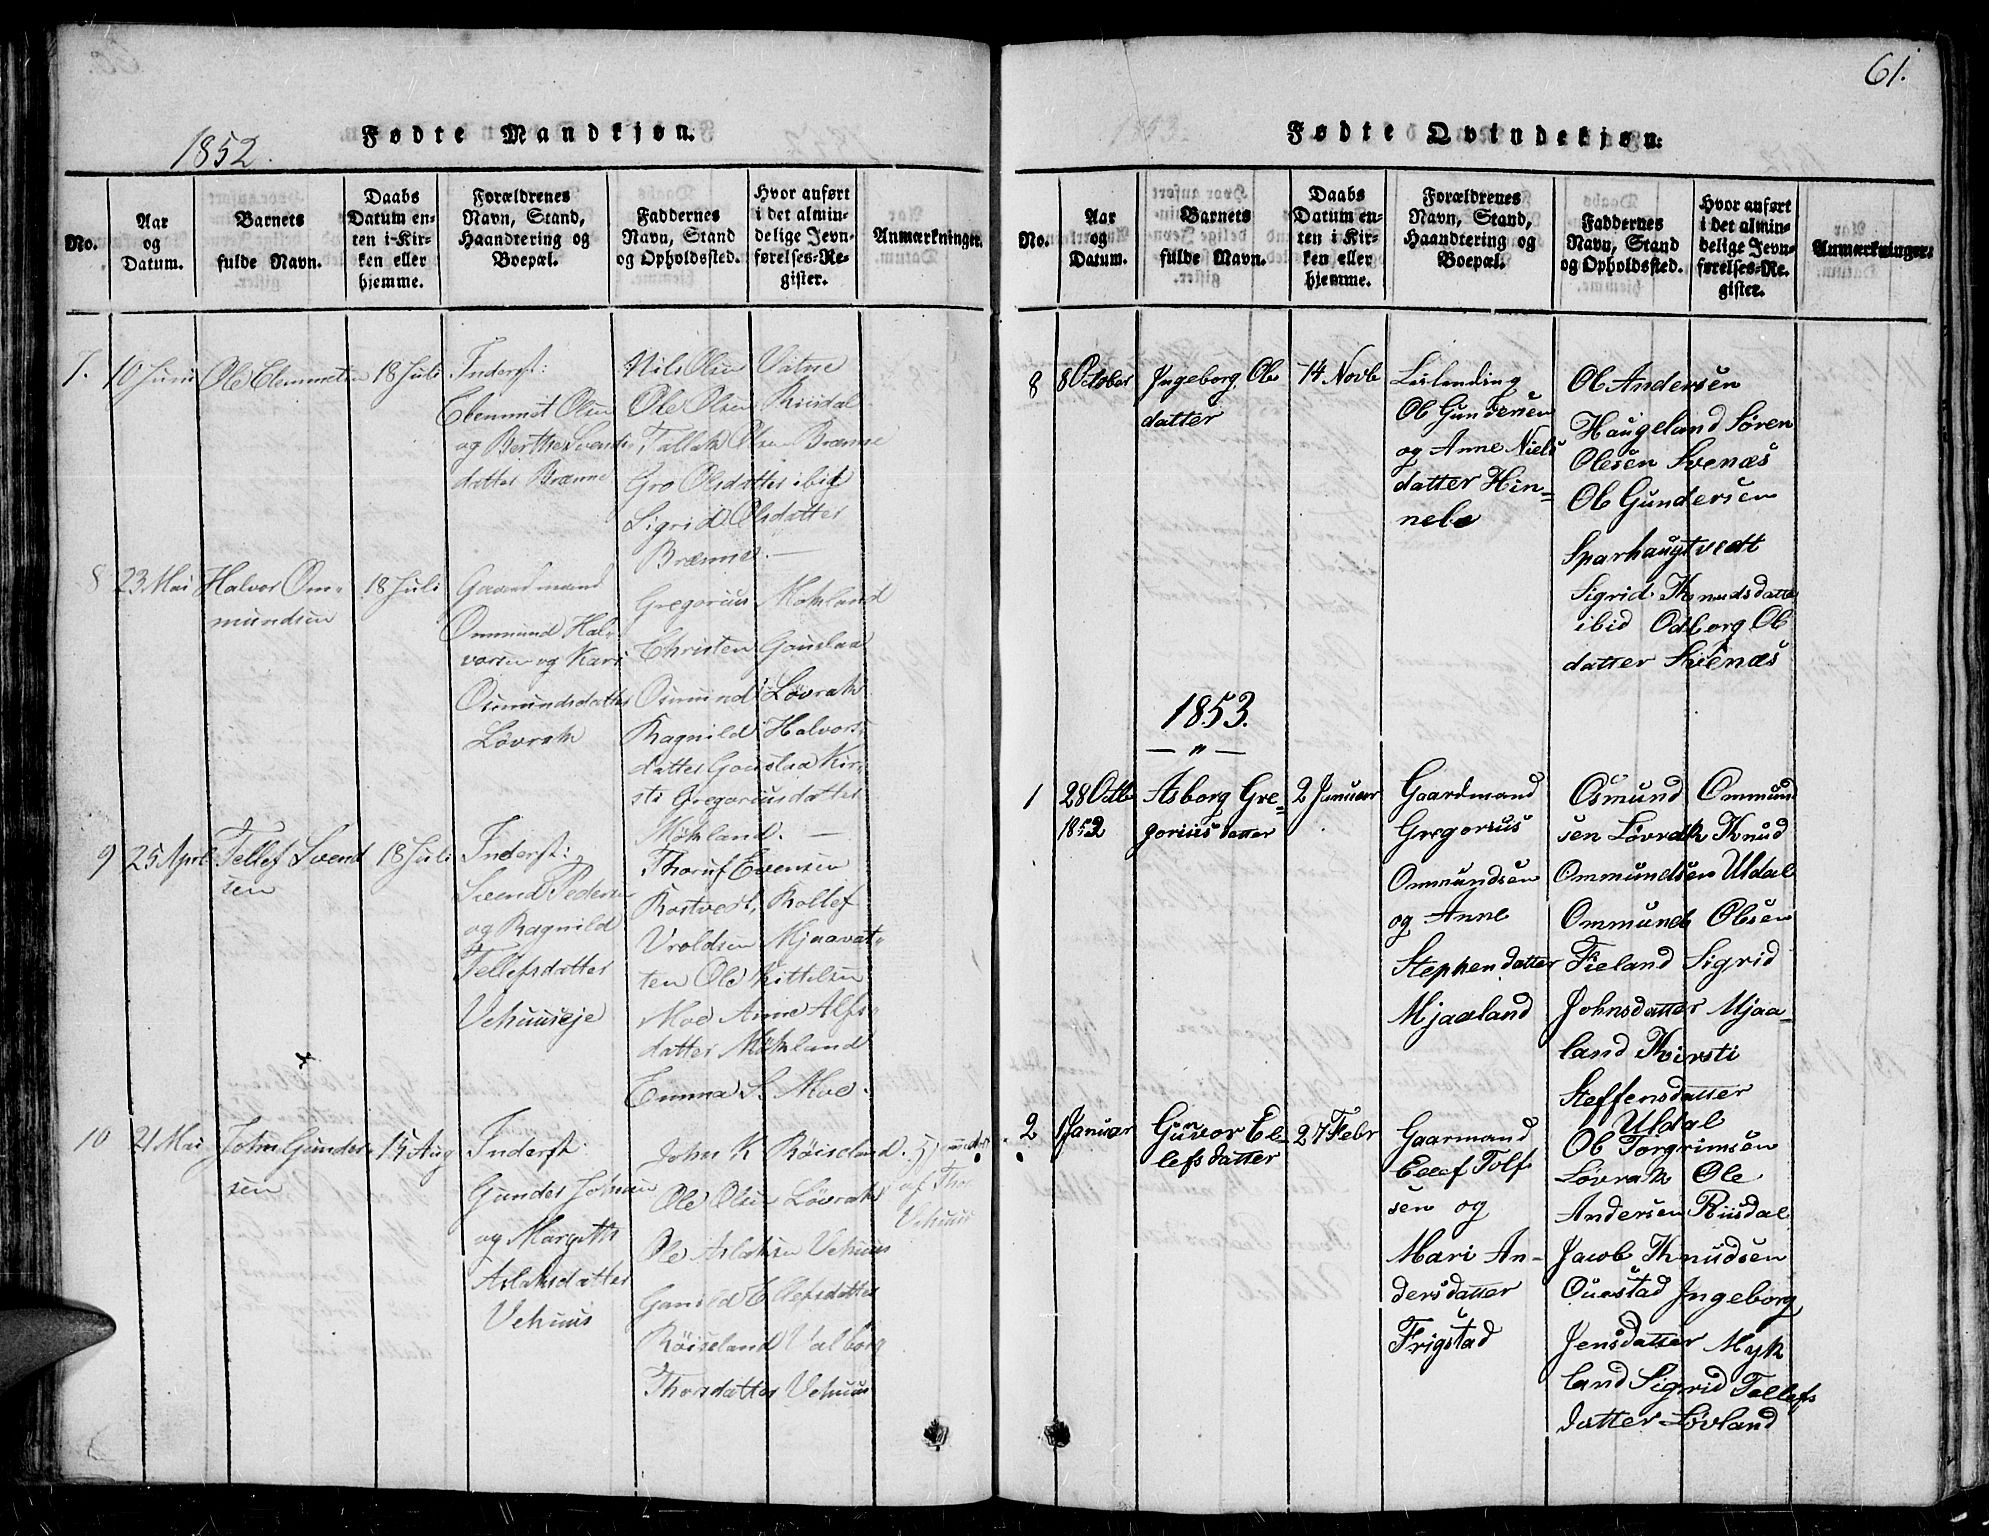 1852.
Fødte Mandkjøn.
No.
Aar
og
Datum.
Barnets
fulde Navn.
Daabs
Datum en-
ten i Kir-
ken eller
hjemme.
Forældrenes
Navn, Stand,
Haandtering og
Boepæl.
Faddernes
Navn, Stand
og Opholdssted.
Hvor anført
i det almin-
delige Jevn-
førelses-Re-
gister.
Anmærkninger.
7.
10 Juni
Ole Clemmetsen
18 Juli
Inderst:
Clemmet Olsen
og Berthe Svends
datter Brænne
Nils Olsen Vatne
Ole Olsen Riisdal
Tallak Olsen Brænne
Gro Olsdatter ibid
Sigrid Olsdatter
Brænne. —
8
23 Mai
Halvor Om-
mundsen
18 Juli
Gaardmand
Ommund Hal-
vorsen og Kari
Osmundsdatter
Løvrak
Gregorius Mokland
Christen Gouslaa
Osmund Løvrak
Ragnild Halvors-
datter Gouslaa Kir-
sti Gregoriusdatter
Mokland. —
9
25 April
Tellef Svend
sen
18 Juli
Inderst:
Svend Peders
og Ragnild
Tellefsdatter
Vehuuseje
Thoruf Evensen
Rostvedt, Rollef
Vroldsen Mjaavat-
ten Ole Kittelsen
Moe Anne Alfs-
datter Mokland
Emma S. Moe.
10
21 Mai
John Gunder-
sen
15 Aug
Inderst:
Gunder Johnsen
og Margith
Aslaksdatter
Vehuus
John K Røiseland
Ole Olsen Løvrak
Ole Aslaksen Vehuus
Gunild Ellefsdatter
Røiseland Valborg
Thorsdatter Vehuus
af Thor
Vehuus
61.
Fødte Qvindekjøn.
No.
Aar
og
Datum.
Barnets
fulde Navn.
Daabs
Datum en-
ten i Kir-
ken eller
hjemme.
Forældrenes
Navn, Stand,
Haandtering og
Boepæl.
Faddernes
Navn, Stand
og Opholdssted.
Hvor anført
i det almin-
delige Jevn-
førelses-Re-
gister.
Anmærkninger.
8
8 October
Ingeborg Ole
datter
14 Novb
Leilending
Ole Gundersen
og Anne Niels
datter Hin-
nebe
Ole Andersen
Haugeland Søren
Olesen Svenæs
Ole Gundersen
Sparhaugtvedt
Sigrid Knudsdatter
ibid Odborg Ole
datter Svenæs
1853.
— " —
1
28 Octb
1852
Asborg Gre-
goriusdatter
2 Januar
Gaardmand
Gregorius
Ommundsen
og Anne
Stephendatter
Mjaaland
Osmund Ommund
sen Løvrak Knud
Ommundsen Uldal
Ommund Olesen
Fieland Sigrid
Johnsdatter Mjaa-
land Kirsti
Steffensdatter
Uldal
2
1 Januar
Gunvor El-
lefsdatter
27 Febr
Gaarmand
Ellef Tolf
sen og
Mari An-
dersdatter
Frigstad
Ole Torgrimsen
Løvrak Ole
Andersen Riisdal
Jacob Knudsen
Ouestad Ingeborg
Jensdatter Myk
land Sigrid Tollefs
datter Løvland